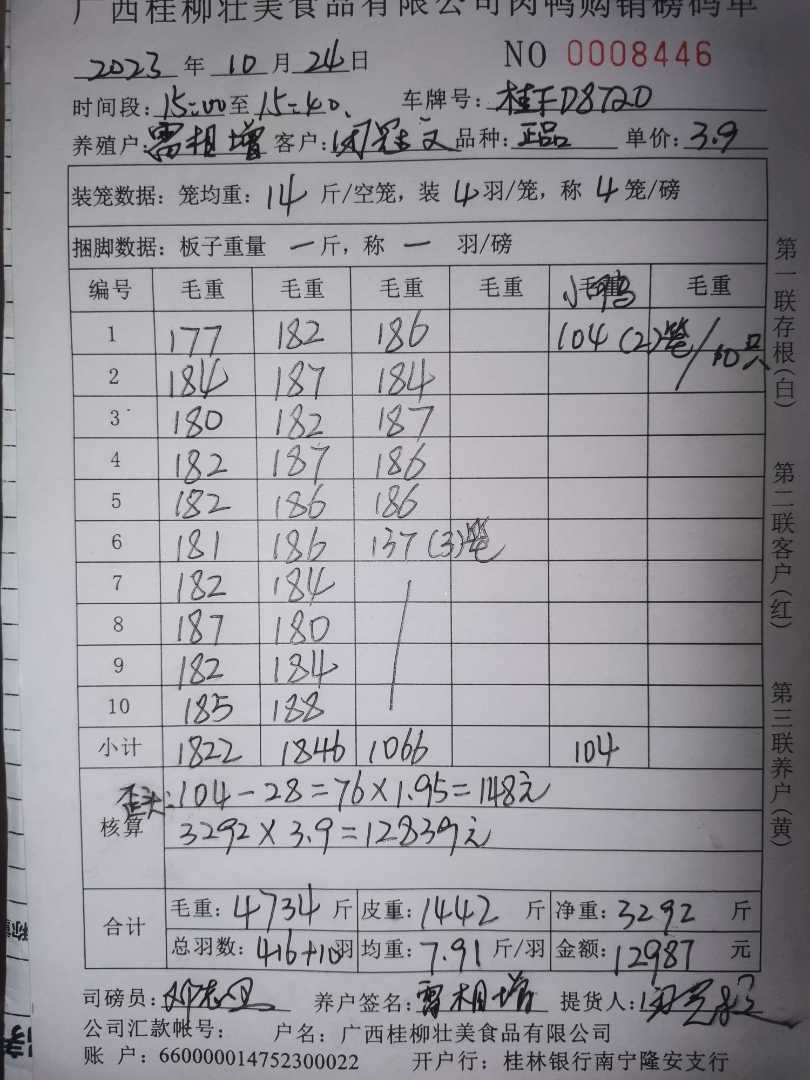 广西桂柳壮美食品有限公司肉鸭购销磅码单
2023 年 10 月 24 日 NO 0008446
时间段: 15:00 至 15:40. 车牌号: 桂FD8720
养殖户: 雷相增 客户: 闭冠文 品种: 正品 单价: 3.9
装笼数据: 笼均重: 14 斤/空笼, 装 4 羽/笼, 称 4 笼/磅
捆脚数据: 板子重量 一 斤, 称 一 羽/磅
编号 毛重 毛重 毛重 毛重 毛重 小鸭 毛重
1 177 182 186 104 (2)笼/10只
2 184 187 184
3 180 182 187
4 182 187 186
5 182 186 186
6 181 186 137 (3)笼
7 182 184
8 187 180
9 182 184
10 185 188
小计 1822 1846 1066 104
核算 歪头: 104-28=76×1.95=148元
3292×3.9=12839元
合计 毛重: 4734 斤 皮重: 1442 斤 净重: 3292 斤
总羽数: 416+10羽 均重: 7.91 斤/羽 金额: 12987 元
司磅员: 养户签名: 雷相增 提货人:
公司汇款帐号: 户名: 广西桂柳壮美食品有限公司
账 户: 660000014752300022 开户行: 桂林银行南宁隆安支行
第一联存根(白) 第二联客户(红) 第三联养户(黄)